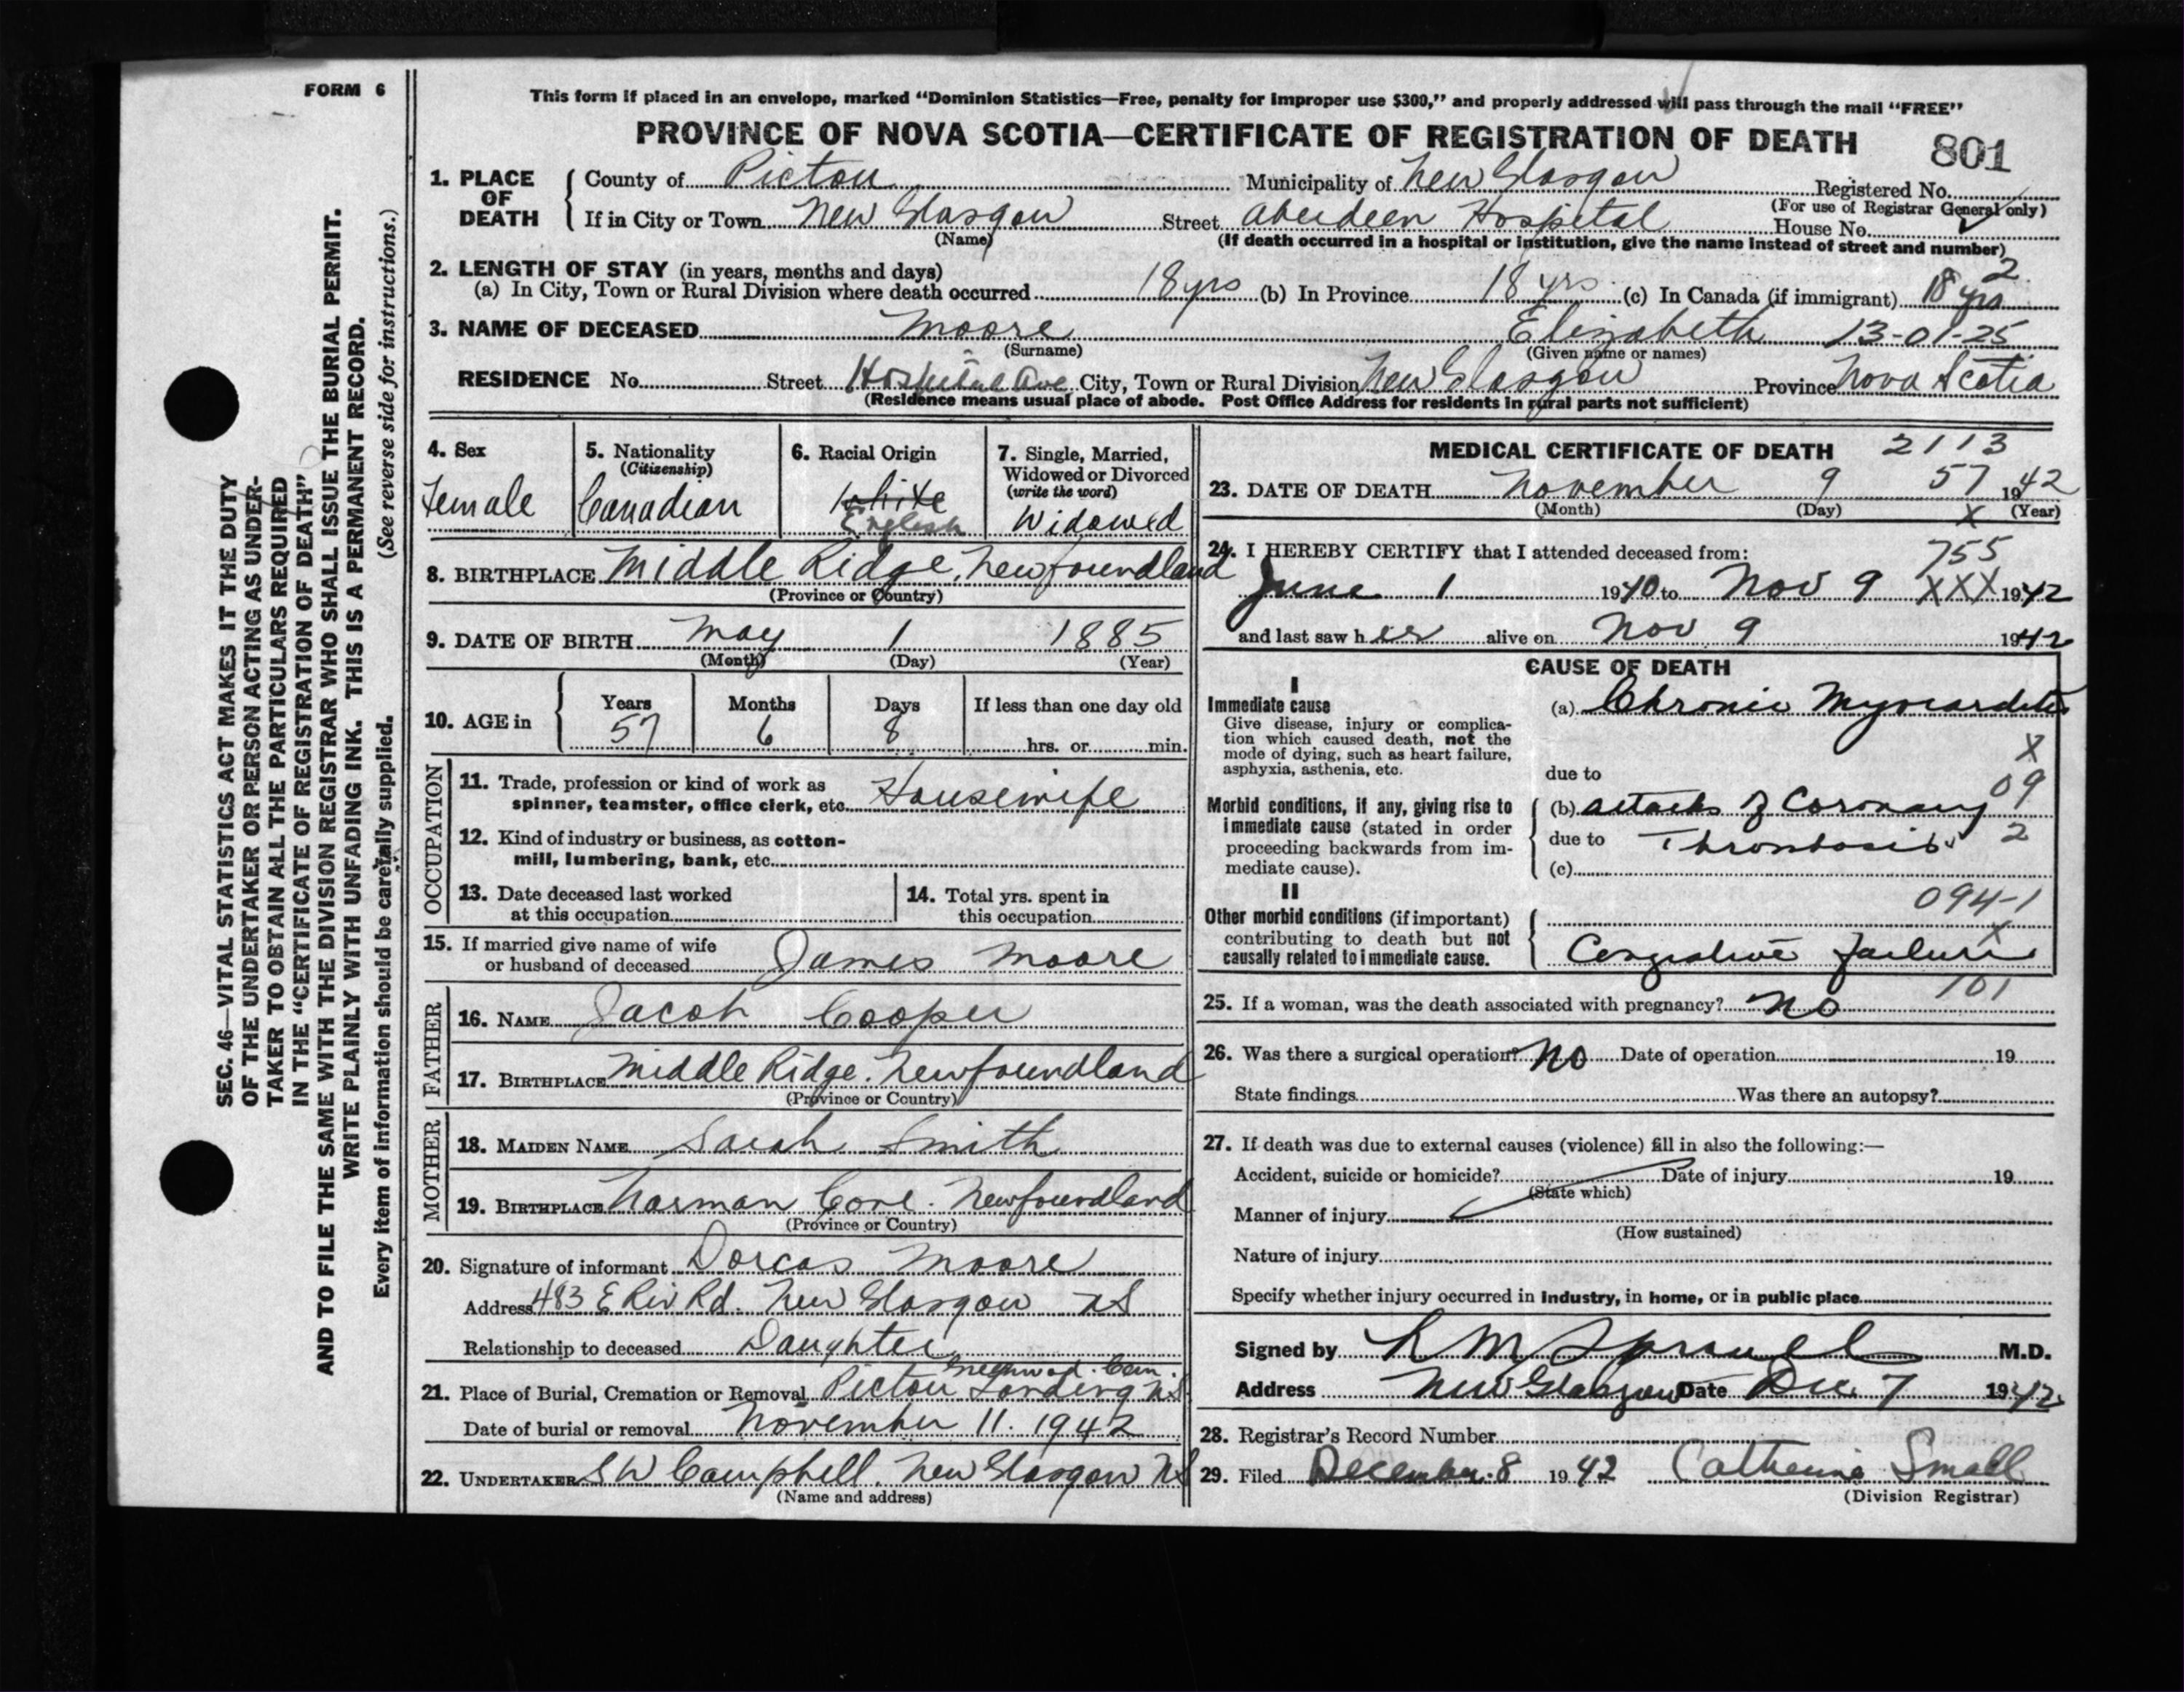 FORM 6
SEC. 46—VITAL STATISTICS ACT MAKES IT THE DUTY
OF THE UNDERTAKER OR PERSON ACTING AS UNDER-
TAKER TO OBTAIN ALL THE PARTICULARS REQUIRED
IN THE "CERTIFICATE OF REGISTRATION OF DEATH"
AND TO FILE THE SAME WITH THE DIVISION REGISTRAR WHO SHALL ISSUE THE BURIAL PERMIT.
WRITE PLAINLY WITH UNFADING INK. THIS IS A PERMANENT RECORD.
Every item of information should be carefully supplied. (See reverse side for instructions.)
This form if placed in an envelope, marked "Dominion Statistics—Free, penalty for improper use $300," and properly addressed will pass through the mail "FREE"
PROVINCE OF NOVA SCOTIA—CERTIFICATE OF REGISTRATION OF DEATH 801
1. PLACE OF DEATH
County of Pictou Municipality of New Glasgow Registered No.
(For use of Registrar General only)
If in City or Town New Glasgow Street Aberdeen Hospital House No.
(Name) (If death occurred in a hospital or institution, give the name instead of street and number)
2. LENGTH OF STAY (in years, months and days) 2
(a) In City, Town or Rural Division where death occurred 18 yrs (b) In Province 18 yrs (c) In Canada (if immigrant) 18 yrs
3. NAME OF DECEASED Moore Elizabeth 13-01-25
(Surname) (Given name or names)
RESIDENCE No. Street Hospital Ave City, Town or Rural Division New Glasgow Province Nova Scotia
(Residence means usual place of abode. Post Office Address for residents in rural parts not sufficient)
4. Sex
Female
5. Nationality
(Citizenship)
Canadian
6. Racial Origin
White
English
7. Single, Married,
Widowed or Divorced
(write the word)
Widowed
8. BIRTHPLACE Middle Ridge, Newfoundland
(Province or Country)
9. DATE OF BIRTH May 1 1885
(Month) (Day) (Year)
10. AGE in
Years Months Days If less than one day old
57 6 8 hrs. or min.
OCCUPATION
11. Trade, profession or kind of work as
spinner, teamster, office clerk, etc. Housewife
12. Kind of industry or business, as cotton-
mill, lumbering, bank, etc.
13. Date deceased last worked
at this occupation
14. Total yrs. spent in
this occupation
15. If married give name of wife
or husband of deceased James Moore
FATHER
16. NAME Jacob Cooper
17. BIRTHPLACE Middle Ridge. Newfoundland
(Province or Country)
MOTHER
18. MAIDEN NAME Sarah Smith
19. BIRTHPLACE Norman Cove. Newfoundland
(Province or Country)
20. Signature of informant Dorcas Moore
Address 483 E Riv Rd. New Glasgow NS
Relationship to deceased Daughter
Greenwood Cem.
21. Place of Burial, Cremation or Removal Pictou Landing NS
Date of burial or removal November 11. 1942
22. UNDERTAKER S W Campbell, New Glasgow NS
(Name and address)
MEDICAL CERTIFICATE OF DEATH 2113
23. DATE OF DEATH November 9 57 1942
(Month) (Day) X (Year)
24. I HEREBY CERTIFY that I attended deceased from: 755
June 1 1940 to Nov 9 XXX 1942
and last saw her alive on Nov 9 1942
CAUSE OF DEATH
I
Immediate cause
Give disease, injury or complica-
tion which caused death, not the
mode of dying, such as heart failure,
asphyxia, asthenia, etc.
(a) Chronic Myocarditis
X
due to
Morbid conditions, if any, giving rise to
immediate cause (stated in order
proceeding backwards from im-
mediate cause).
(b) attacks of Coronary 09
due to Thrombosis 2
(c)
II
Other morbid conditions (if important)
contributing to death but not
causally related to immediate cause.
094-1
X
Congestive failure
101
25. If a woman, was the death associated with pregnancy? No
26. Was there a surgical operation? No Date of operation 19
State findings Was there an autopsy?
27. If death was due to external causes (violence) fill in also the following:—
Accident, suicide or homicide? Date of injury 19
(State which)
Manner of injury
(How sustained)
Nature of injury
Specify whether injury occurred in industry, in home, or in public place
Signed by M.D.
Address New Glasgow Date Dec. 7 1942
28. Registrar's Record Number
29. Filed December 8 1942 Catherine Small
(Division Registrar)